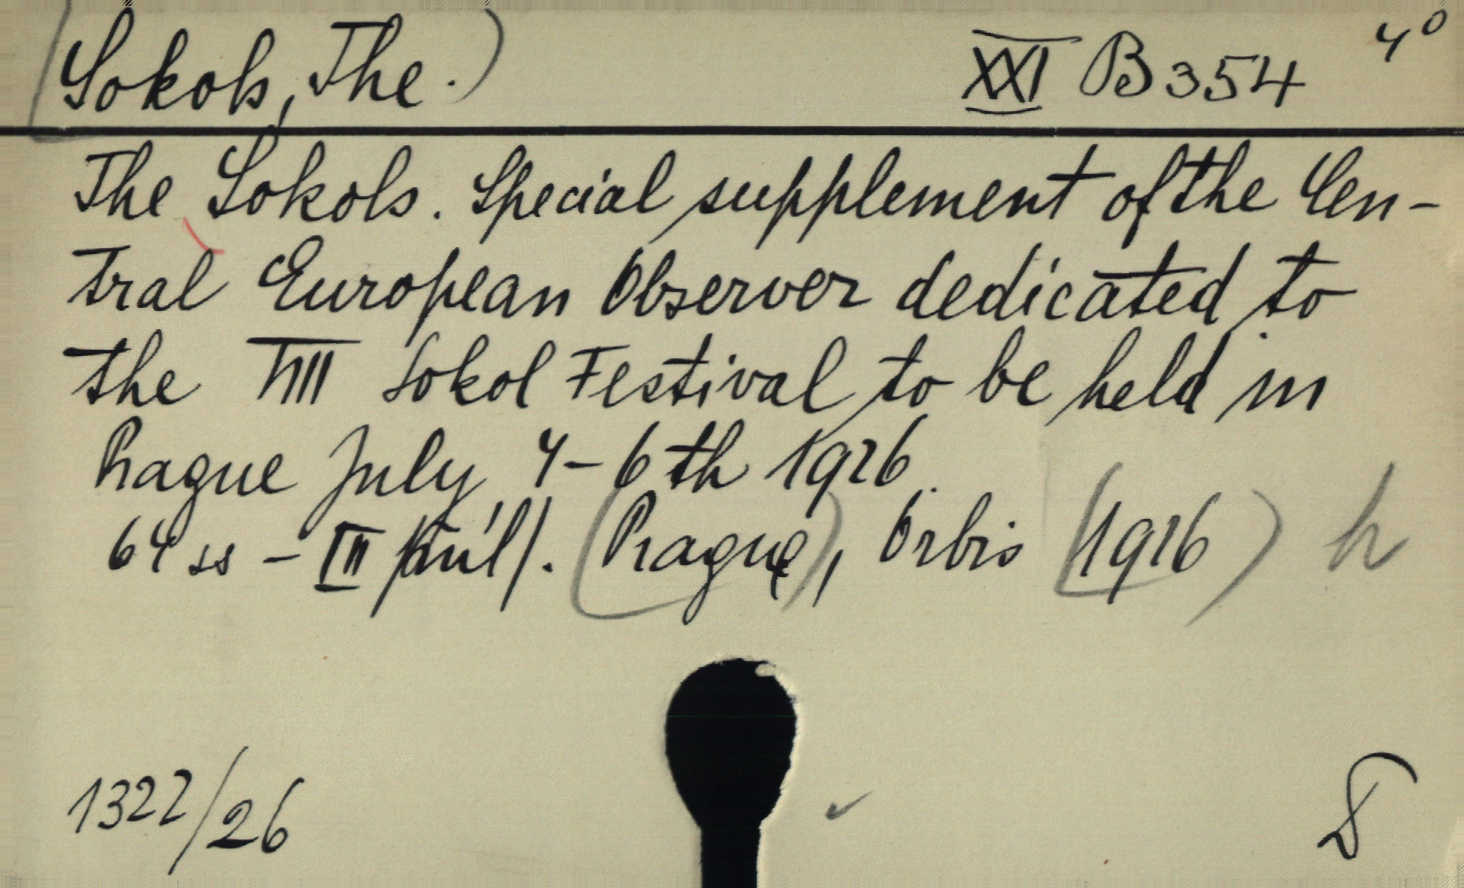 (Sokols, The.) XXI B 354 4°
The Sokols. Special supplement of the Cen-
tral European Observer dedicated to
the VIII Sokol Festival to be held in
Prague July 4-6th 1926.
64 ss - III příl/. (Prague), Orbis (1926)
1322/26